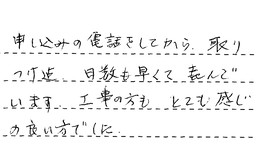 申し込みの電話をしてから、取り
つけ迄、日数も早くて喜んで
います。工事の方も、とても感じ
の良い方でした